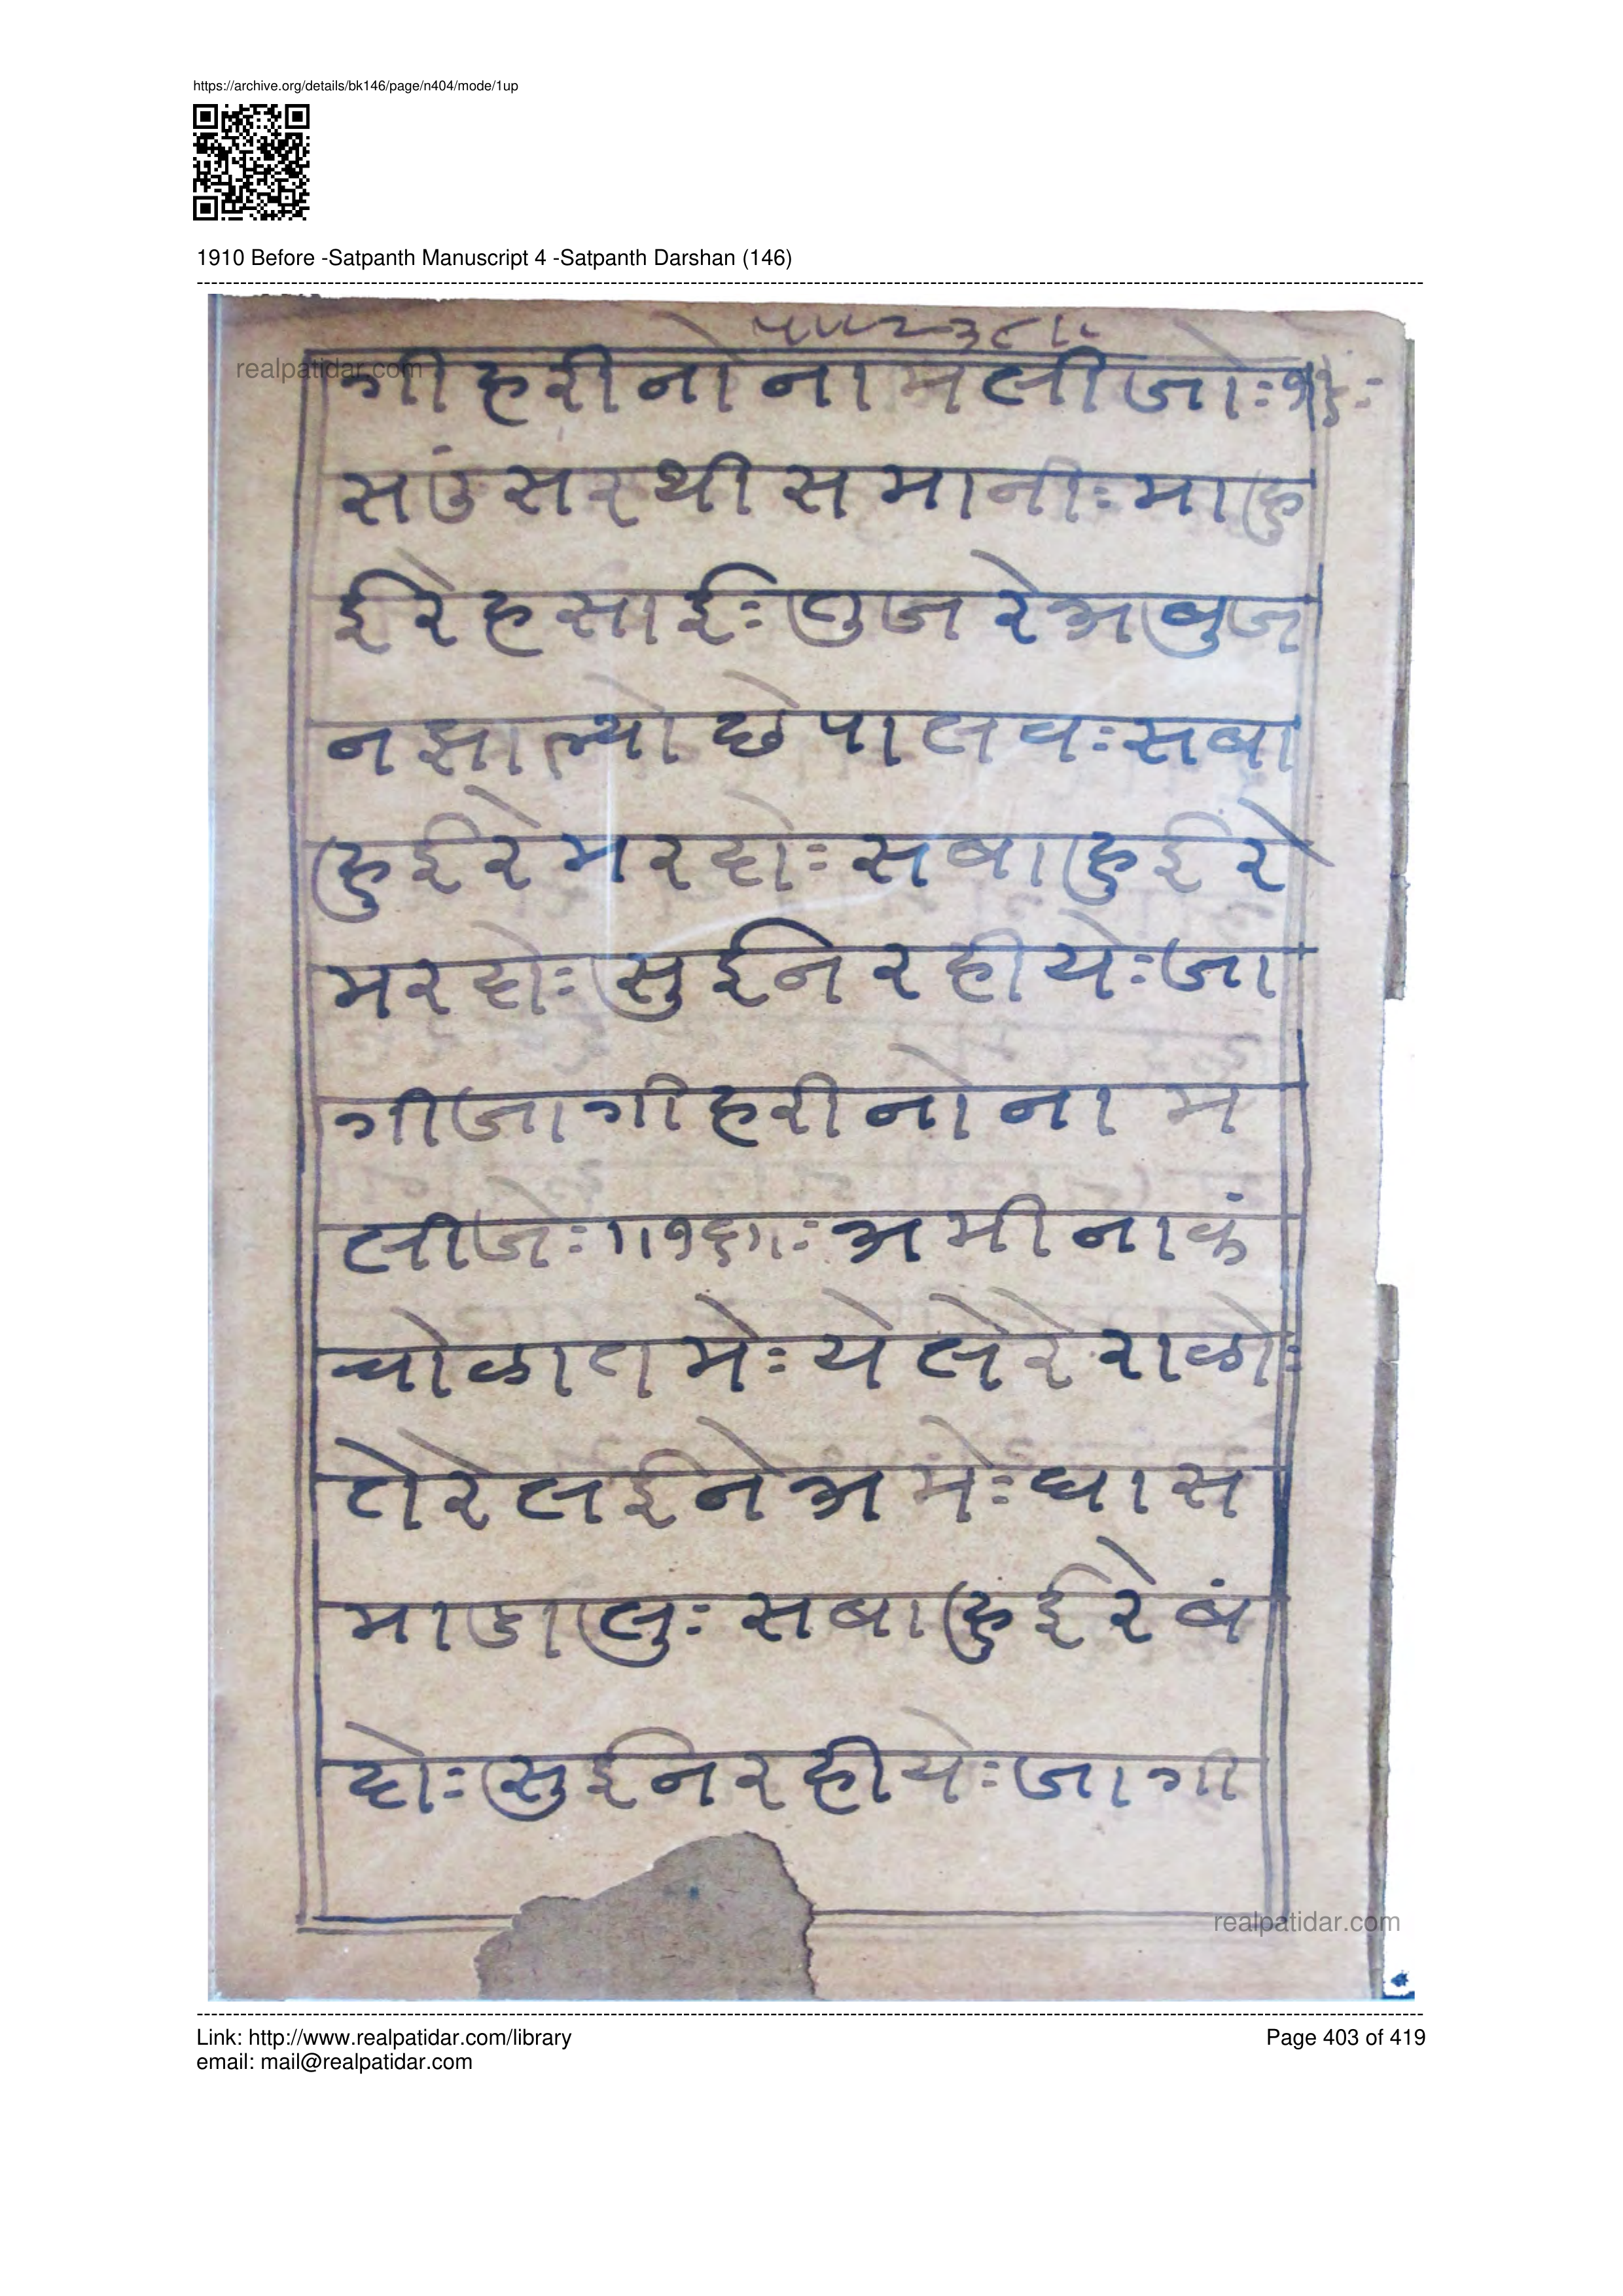 https://archive.org/details/bk146/page/n404/mode/1up
1910 Before -Satpanth Manuscript 4 -Satpanth Darshan (146)
realpatidar.com
गी हरी नो ना म ली जोः
सउं सर थी स मा नीः मा हु
ई रे ह सा ईः तु ज रे अ बु ज
न झा ल्यो छे पा ल वः स बा
हु ई रे म र दोः स बा हु ई रे
म र दोः सु ई न र ही येः जा
गी जा गी ह री नो ना म
ली जेः ॥१६॥ः अ मी ना कं
चो ळा त मेः ये ले रे रा ळोः
ते रे ल ई ने अ मेः घा स
मा डा लुः स बा हु ई रे बं
दोः सु ई न र ही येः जा गी
realpatidar.com
Link: http://www.realpatidar.com/library
Page 403 of 419
email: mail@realpatidar.com